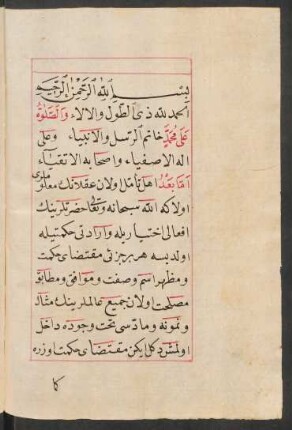 بسم الله الرحمن الرحيم
الحمد لله ذى الطول والالاء والصلوة
على محمد خاتم الرسل والانبياء وعلى
اله الاصفياء واصحابه الاتقياء
اما بعد اهل تأمل اولان عقلانك معلومى
اولا كه الله سبحانه وتعالى حضرتلرينك
افعالى اختياريله وارادتى حكمتيله
اولديسه هر برجزئى مقتضاى حكمت
ومظهر اسم وصفت وموافق ومطابق
مصلحت اولان جميع عالملرينك مثال
ونمونه وماده سى تحت وجوده داخل
اولمشدر كل ايكن مقتضاى حكمت اوزره
كا